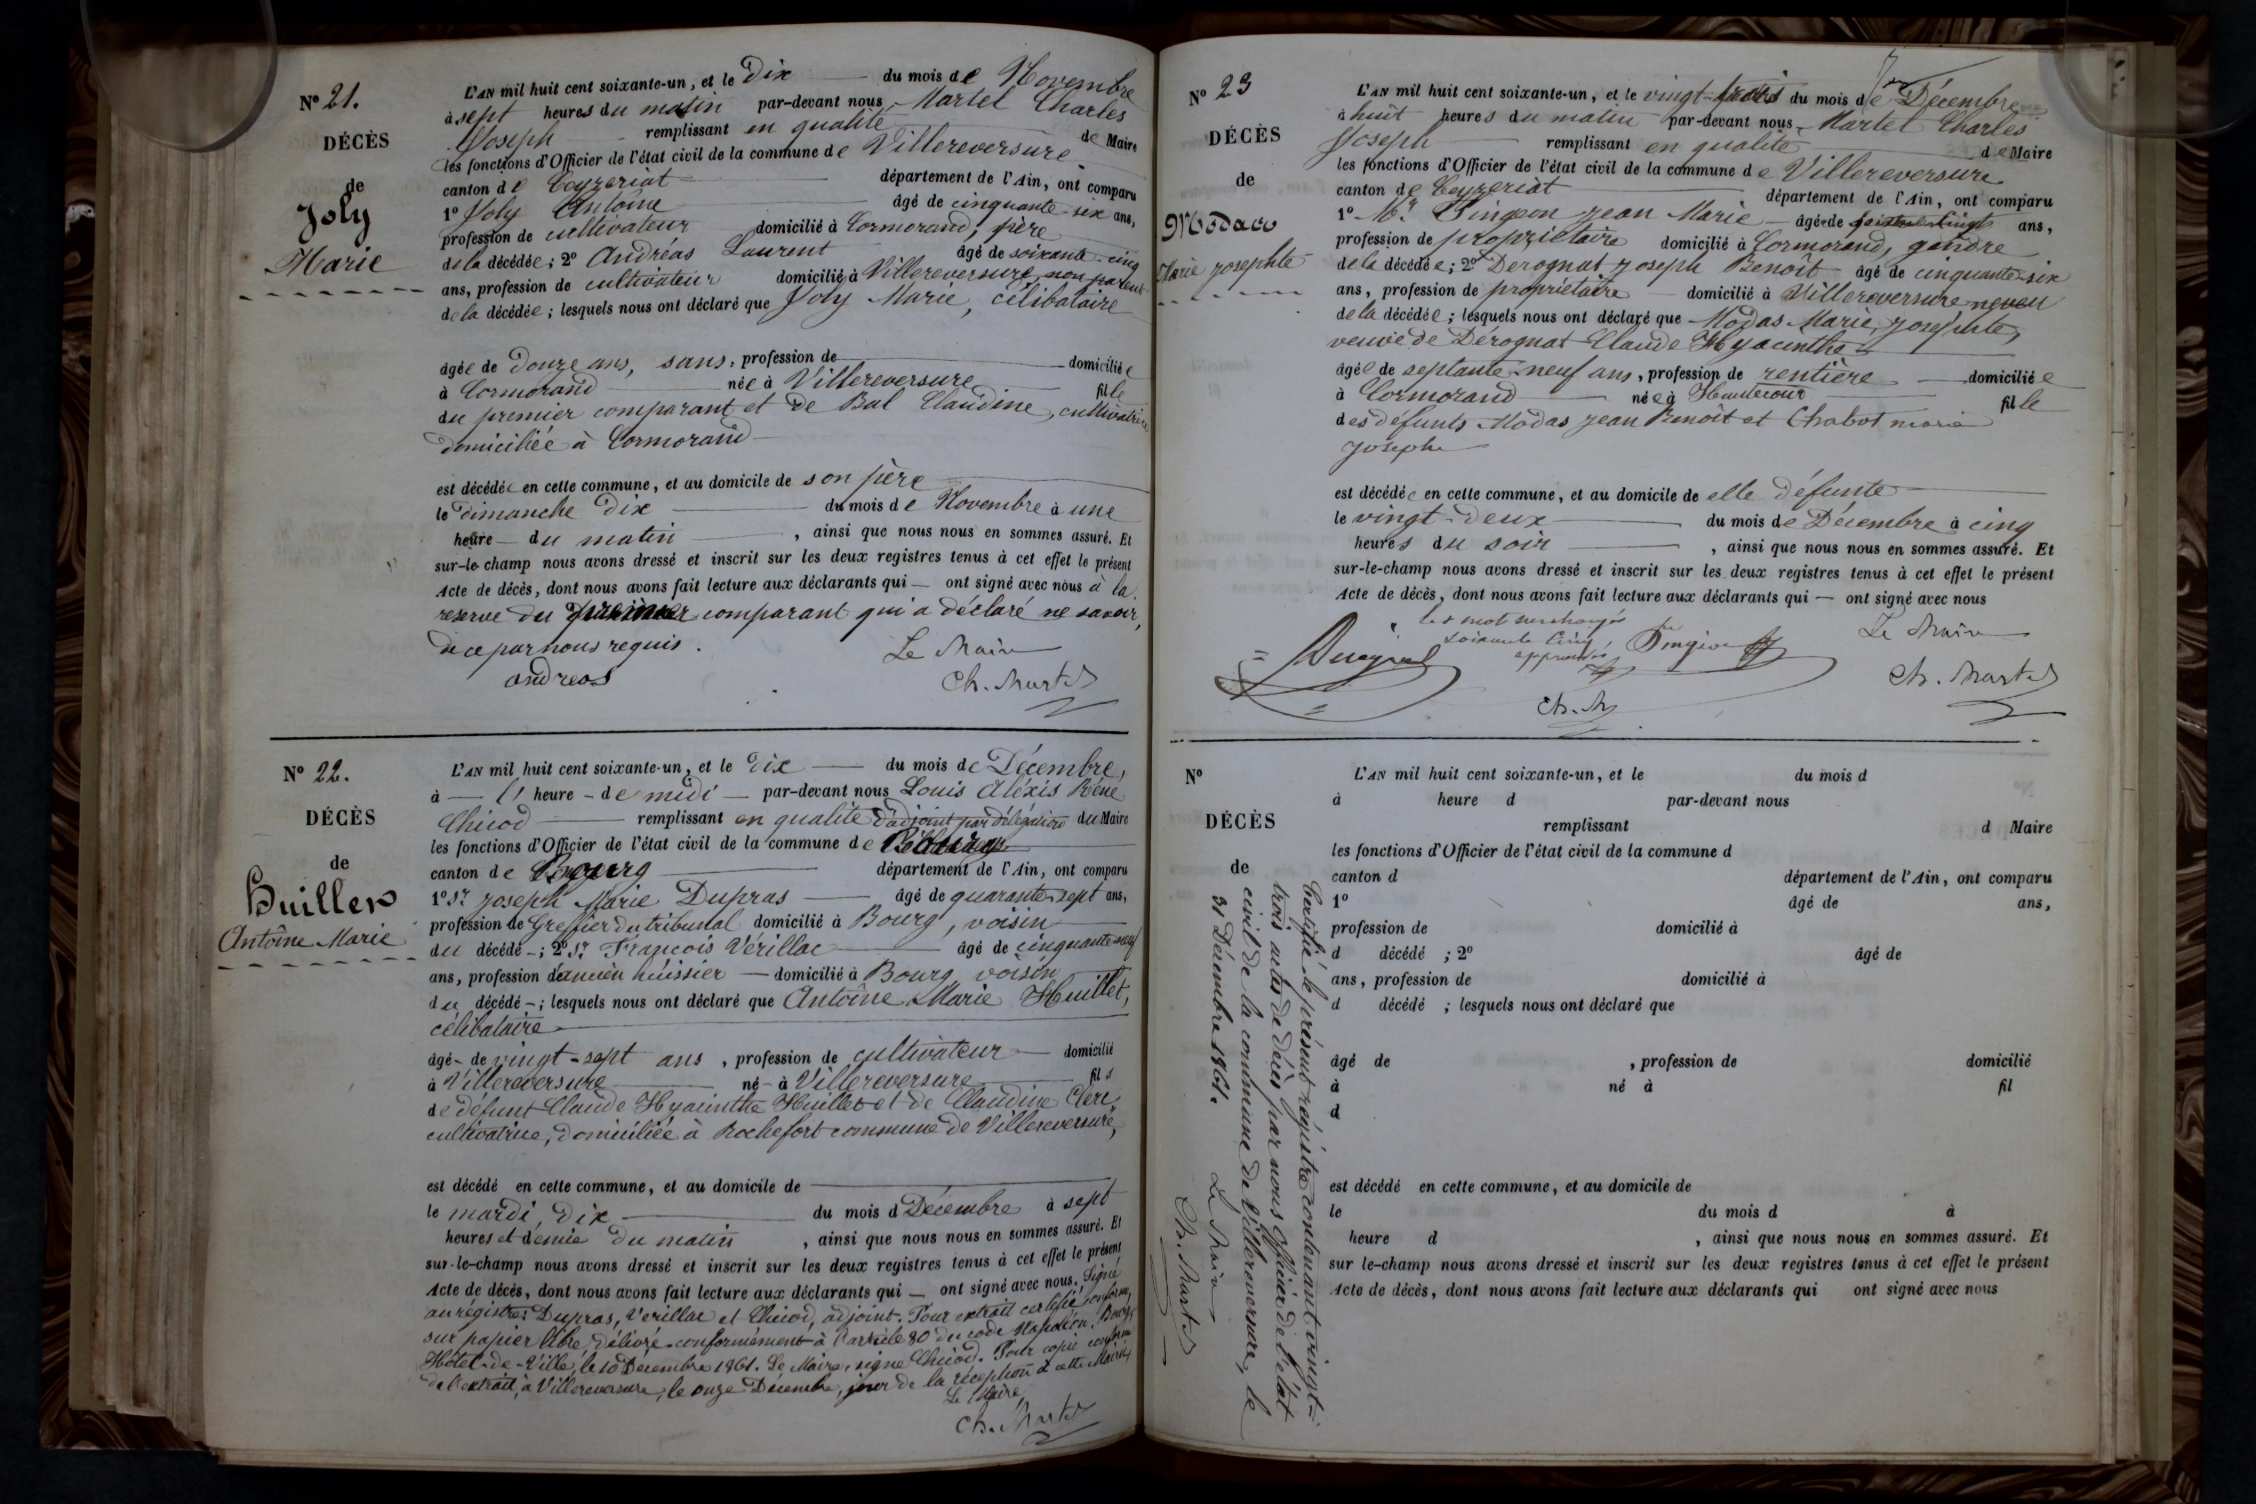 Nº 21.
DÉCÈS
de
Joly
Marie
L'AN mil huit cent soixante-un, et le Dix du mois de Novembre
à sept heures du matin par-devant nous Martel Charles
Joseph remplissant en qualité de Maire
les fonctions d'Officier de l'état civil de la commune de Villereversure
canton de Ceyzeriat département de l'Ain, ont comparu
1º Joly Antoine âgé de cinquante-six ans,
profession de cultivateur domicilié à Cormorand, père
de la décédée; 2º Andréas Laurent âgé de soixante-cinq
ans, profession de cultivateur domicilié à Villereversure, non parent
de la décédée; lesquels nous ont déclaré que Joly Marie, célibataire
âgée de douze ans, sans, profession de domiciliée
à Cormorand née à Villereversure fille
du premier comparant et de Bal Claudine, cultivatrice
domiciliée à Cormorand
est décédée en cette commune, et au domicile de son père
le dimanche dix du mois de Novembre à une
heure du matin, ainsi que nous nous en sommes assuré. Et
sur-le-champ nous avons dressé et inscrit sur les deux registres tenus à cet effet le présent
Acte de décès, dont nous avons fait lecture aux déclarants qui ont signé avec nous à la
réserve du premier comparant qui a déclaré ne savoir,
de ce par nous requis.
andreas
Le Maire
Ch. Martel
Nº 22.
DÉCÈS
de
Huillet
Antoine Marie
L'AN mil huit cent soixante-un, et le dix du mois de Décembre,
à heure de midi par-devant nous Louis Aléxis Réné
Chicod remplissant en qualité d'adjoint par délégation du Maire
les fonctions d'Officier de l'état civil de la commune de
canton de Bourg département de l'Ain, ont comparu
1º Sr Joseph Marie Dupras âgé de quarante-sept ans,
profession de Greffier du tribunal domicilié à Bourg, voisin
du décédé; 2º Sr François Vérillac âgé de cinquante neuf
ans, profession d'ancien huissier domicilié à Bourg, voisin
du décédé; lesquels nous ont déclaré que Antoine Marie Huillet,
célibataire
âgé de vingt-sept ans, profession de cultivateur domicilié
à Villereversure né à Villereversure fils
de défunt Claude Hyacinthe Huillet et de Claudine Clerc
cultivatrice, domiciliée à Rochefort commune de Villereversure,
est décédé en cette commune, et au domicile de
le mardi dix du mois d Décembre à sept
heures et demie du matin, ainsi que nous nous en sommes assuré. Et
sur-le-champ nous avons dressé et inscrit sur les deux registres tenus à cet effet le présent
Acte de décès, dont nous avons fait lecture aux déclarants qui ont signé avec nous. Signé
au régistre: Dupras, Vérillac et Chicod, adjoint. Pour extrait certifié conforme,
sur papier libre, délivré conformément à l'article 80 du code Napoléon. Bourg,
Hôtel-de-Ville, le 10 Décembre 1861. Le Maire, signé Chicod. Pour copie conforme
de l'extrait, à Villereversure, le onze Décembre, jour de la réception à cette Mairie,
Le Maire,
Ch. Martel
Nº 23
DÉCÈS
de
Modas
Marie Josephte
L'AN mil huit cent soixante-un, et le vingt-trois du mois de Décembre
à huit heures du matin par-devant nous Martel Charles
Joseph remplissant en qualité de Maire
les fonctions d'Officier de l'état civil de la commune de Villereversure
canton de Ceyzeriat département de l'Ain, ont comparu
1º Mr Pingeon Jean Marie âgé de ans,
profession de propriétaire domicilié à Cormorand, gendre
de la décédée; 2º Dérognat Joseph Benoît âgé de cinquante-six
ans, profession de propriétaire domicilié à Villereversure neveu
de la décédée; lesquels nous ont déclaré que Modas Marie Josephte,
veuve de Dérognat Claude Hyacinthe
âgée de septante-neuf ans, profession de rentière domiciliée
à Cormorand née à Hautecour fille
des défunts Modas Jean Benoît et Chabot marie
Josephe
est décédée en cette commune, et au domicile de elle défunte
le vingt-deux du mois de Décembre à cinq
heures du soir, ainsi que nous nous en sommes assuré. Et
sur-le-champ nous avons dressé et inscrit sur les deux registres tenus à cet effet le présent
Acte de décès, dont nous avons fait lecture aux déclarants qui ont signé avec nous
mot surchargé
soixante cinq,
Le Maire
Ch. Martel
Ch. M
Nº
DÉCÈS
de
L'AN mil huit cent soixante-un, et le du mois d
à heure d par-devant nous
remplissant d Maire
les fonctions d'Officier de l'état civil de la commune d
canton d département de l'Ain, ont comparu
1º âgé de ans,
profession de domicilié à
d décédé ; 2º âgé de
ans, profession de domicilié à
d décédé ; lesquels nous ont déclaré que
âgé de , profession de domicilié
à né à fil
d
est décédé en cette commune, et au domicile de
le du mois d à
heure d , ainsi que nous nous en sommes assuré. Et
sur le-champ nous avons dressé et inscrit sur les deux registres tenus à cet effet le présent
Acte de décès, dont nous avons fait lecture aux déclarants qui ont signé avec nous
Certifié le présent régistre contenant vingt-
trois actes de décès par nous officier de l'état
civil de la commune de Villereversure, le
31 Décembre 1861.
Le Maire
Ch. Martel